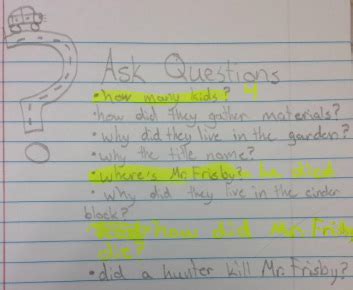 Ask Questions
• how many kids? 4
• how did they gather materials?
• why did they live in the garden?
• why the title name?
• where's Mr. Frisby? he died
• why did they live in the cinder
block?
• how did Mr. Frisby
die?
• did a hunter kill Mr. Frisby?